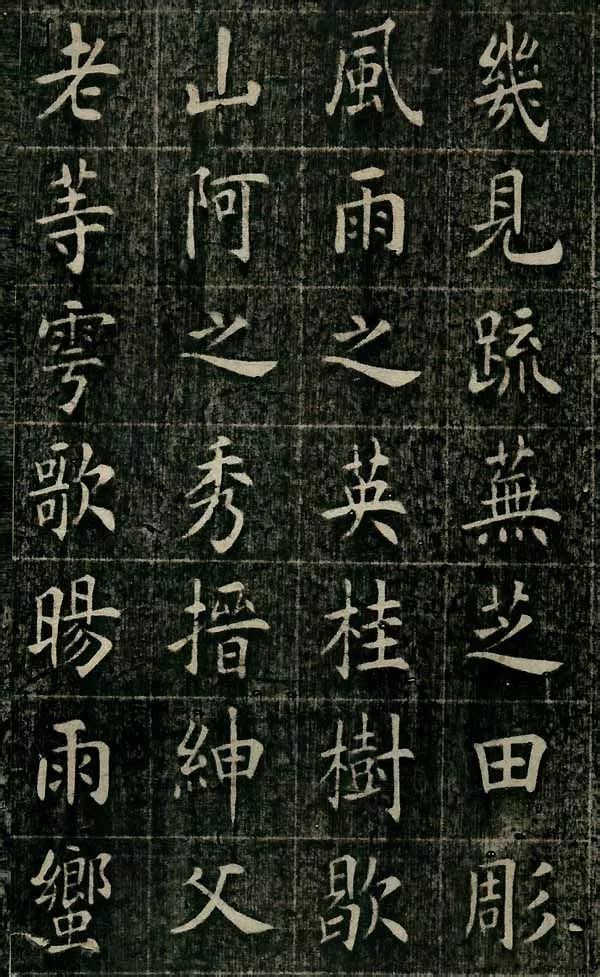 幾見疏蕪芝田彫
風雨之英桂樹歇
山阿之秀搢紳父
老等雩歌暘雨蠁